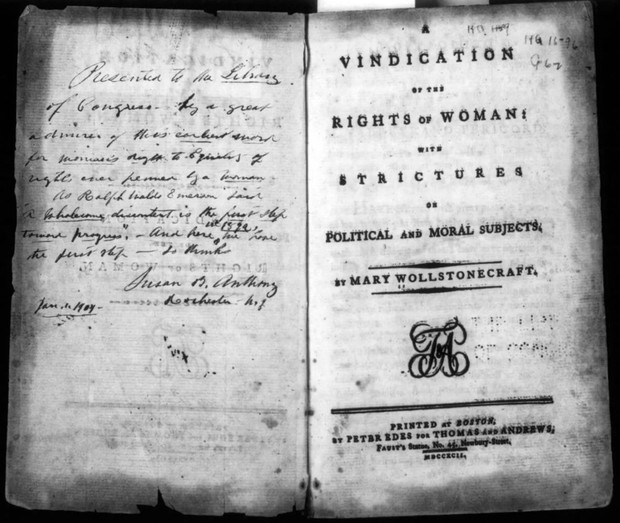 Presented to the Library
of Congress by a great
admirer of this earliest work
for woman's right to Equality of
rights ever penned by a woman.
As Ralph Waldo Emerson said
"A wholesome discontent is the first step
toward progress". - And here, in 1792, we have
the first step - So thinks
Susan B. Anthony
Rochester N.Y.
Jan. 1. 1904 -
A
VINDICATION
OF THE
RIGHTS OF WOMAN:
WITH
STRICTURES
ON
POLITICAL AND MORAL SUBJECTS.
BY MARY WOLLSTONECRAFT.
PRINTED AT BOSTON,
BY PETER EDES FOR THOMAS AND ANDREWS,
FAUST'S Statue, No. 45, Newbury-Street,
MDCCXCII.